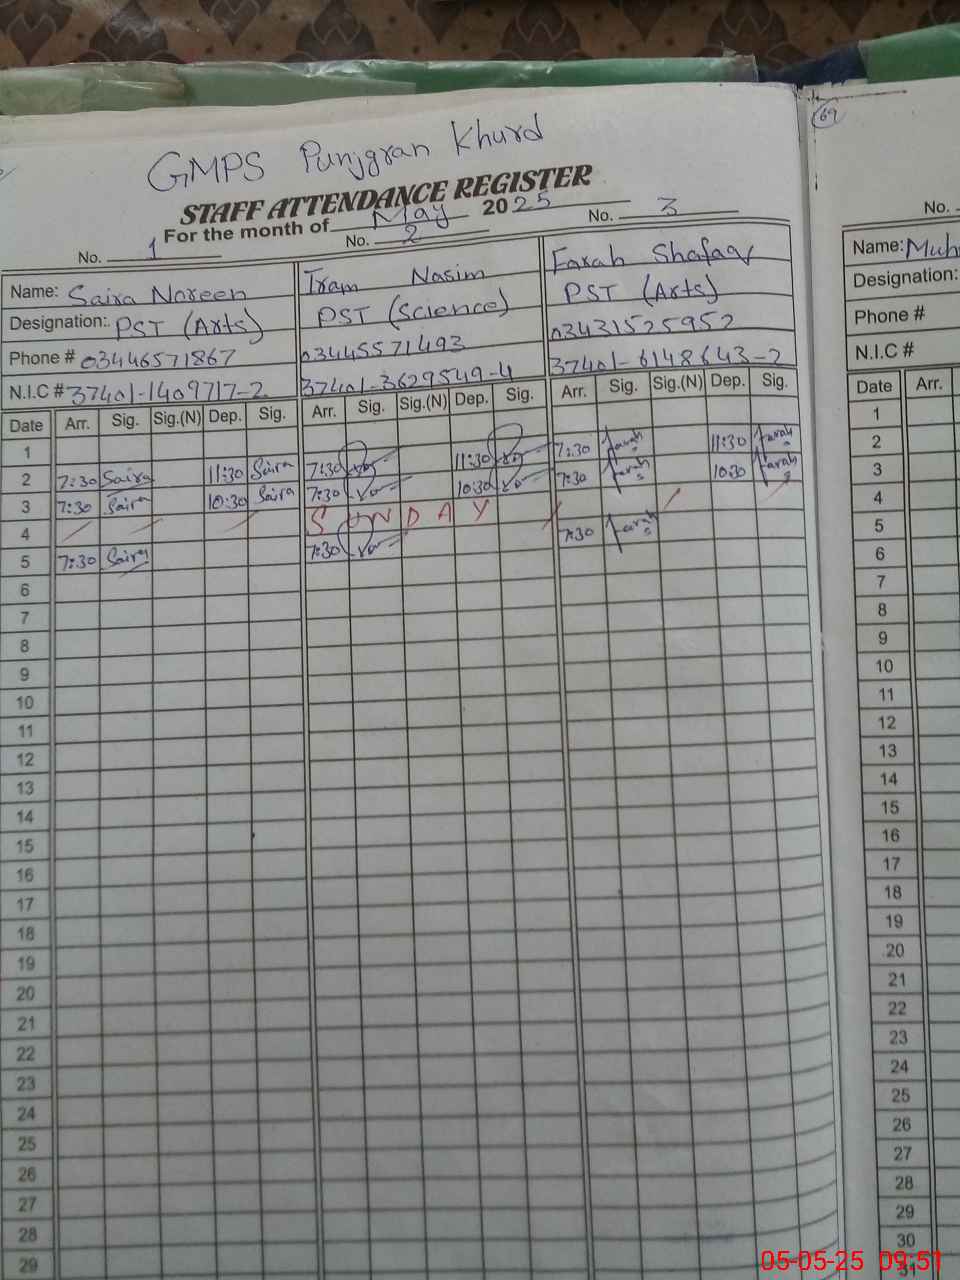 69
GMPS Punjgran Khurd
STAFF ATTENDANCE REGISTER
For the month of May 2025
No. 1 No. 2 No. 3
Name: Saira Noreen Iram Nasim Farah Shafaq
Designation: PST (Arts) PST (Science) PST (Arts)
Phone # 03446571867 03445571493 03431525952
N.I.C # 37401-1409717-2 37401-3629549-4 37401-6148643-2
Date Arr. Sig. Sig.(N) Dep. Sig. Arr. Sig. Sig.(N) Dep. Sig. Arr. Sig. Sig.(N) Dep. Sig.
1
2 7:30 Saira 11:30 Saira 7:30 11:30 7:30 Farah 11:30 Farah
3 7:30 Saira 10:30 Saira 7:30 10:30 7:30 Farah 10:30 Farah
4 SUNDAY
5 7:30 Saira 7:30 7:30 Farah
6
7
8
9
10
11
12
13
14
15
16
17
18
19
20
21
22
23
24
25
26
27
28
29
No.
Name: Muh
Designation:
Phone #
N.I.C #
Date Arr.
1
2
3
4
5
6
7
8
9
10
11
12
13
14
15
16
17
18
19
20
21
22
23
24
25
26
27
28
29
30
31
05-05-25 09:51